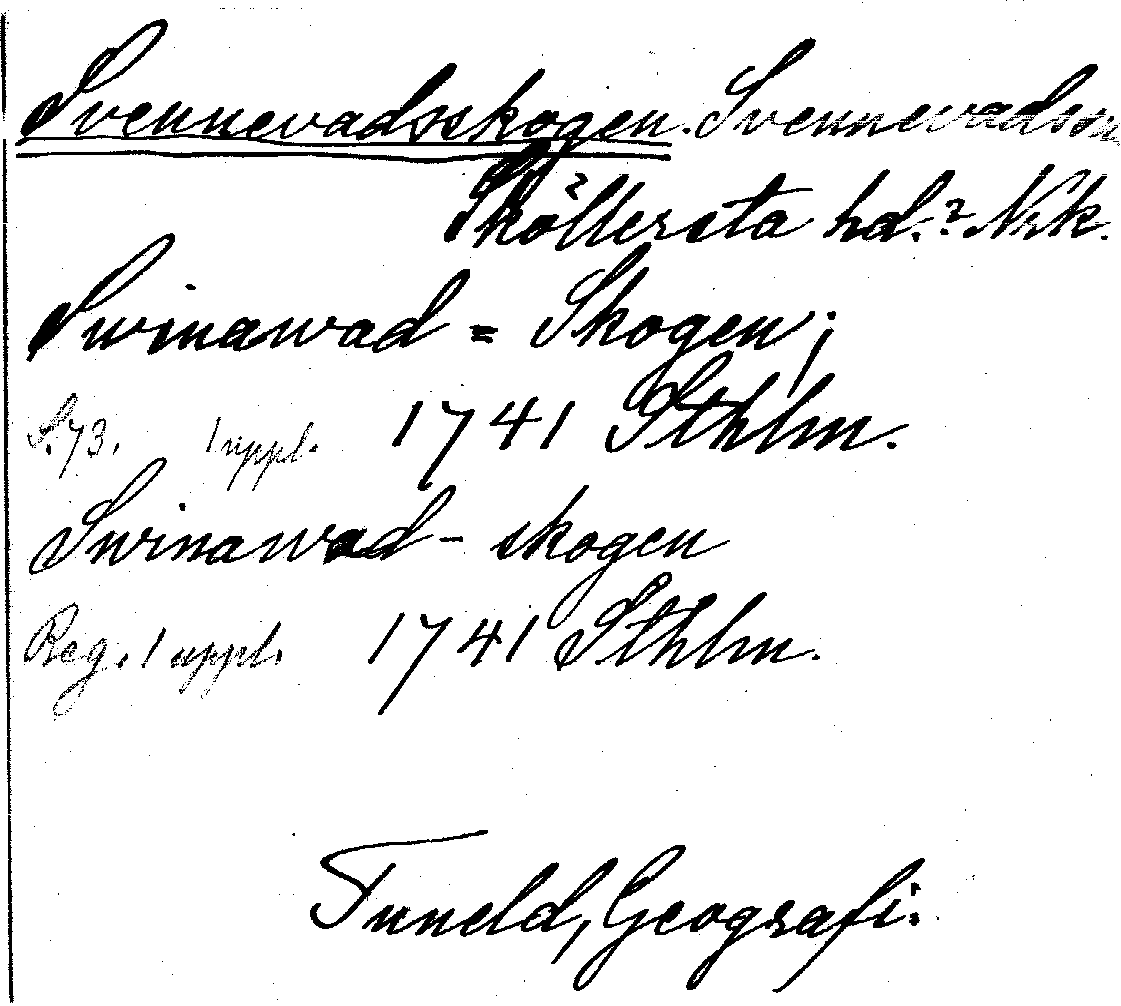 Svennevadsskogen. Svennevadssn
Sköllersta hd.? Nrk.
Swinawad = Skogen;
S.73. 1 uppl. 1741 Sthlm.
Swinawad - skogen
Reg. 1 uppl. 1741 Sthlm.
Tuneld, Geografi.